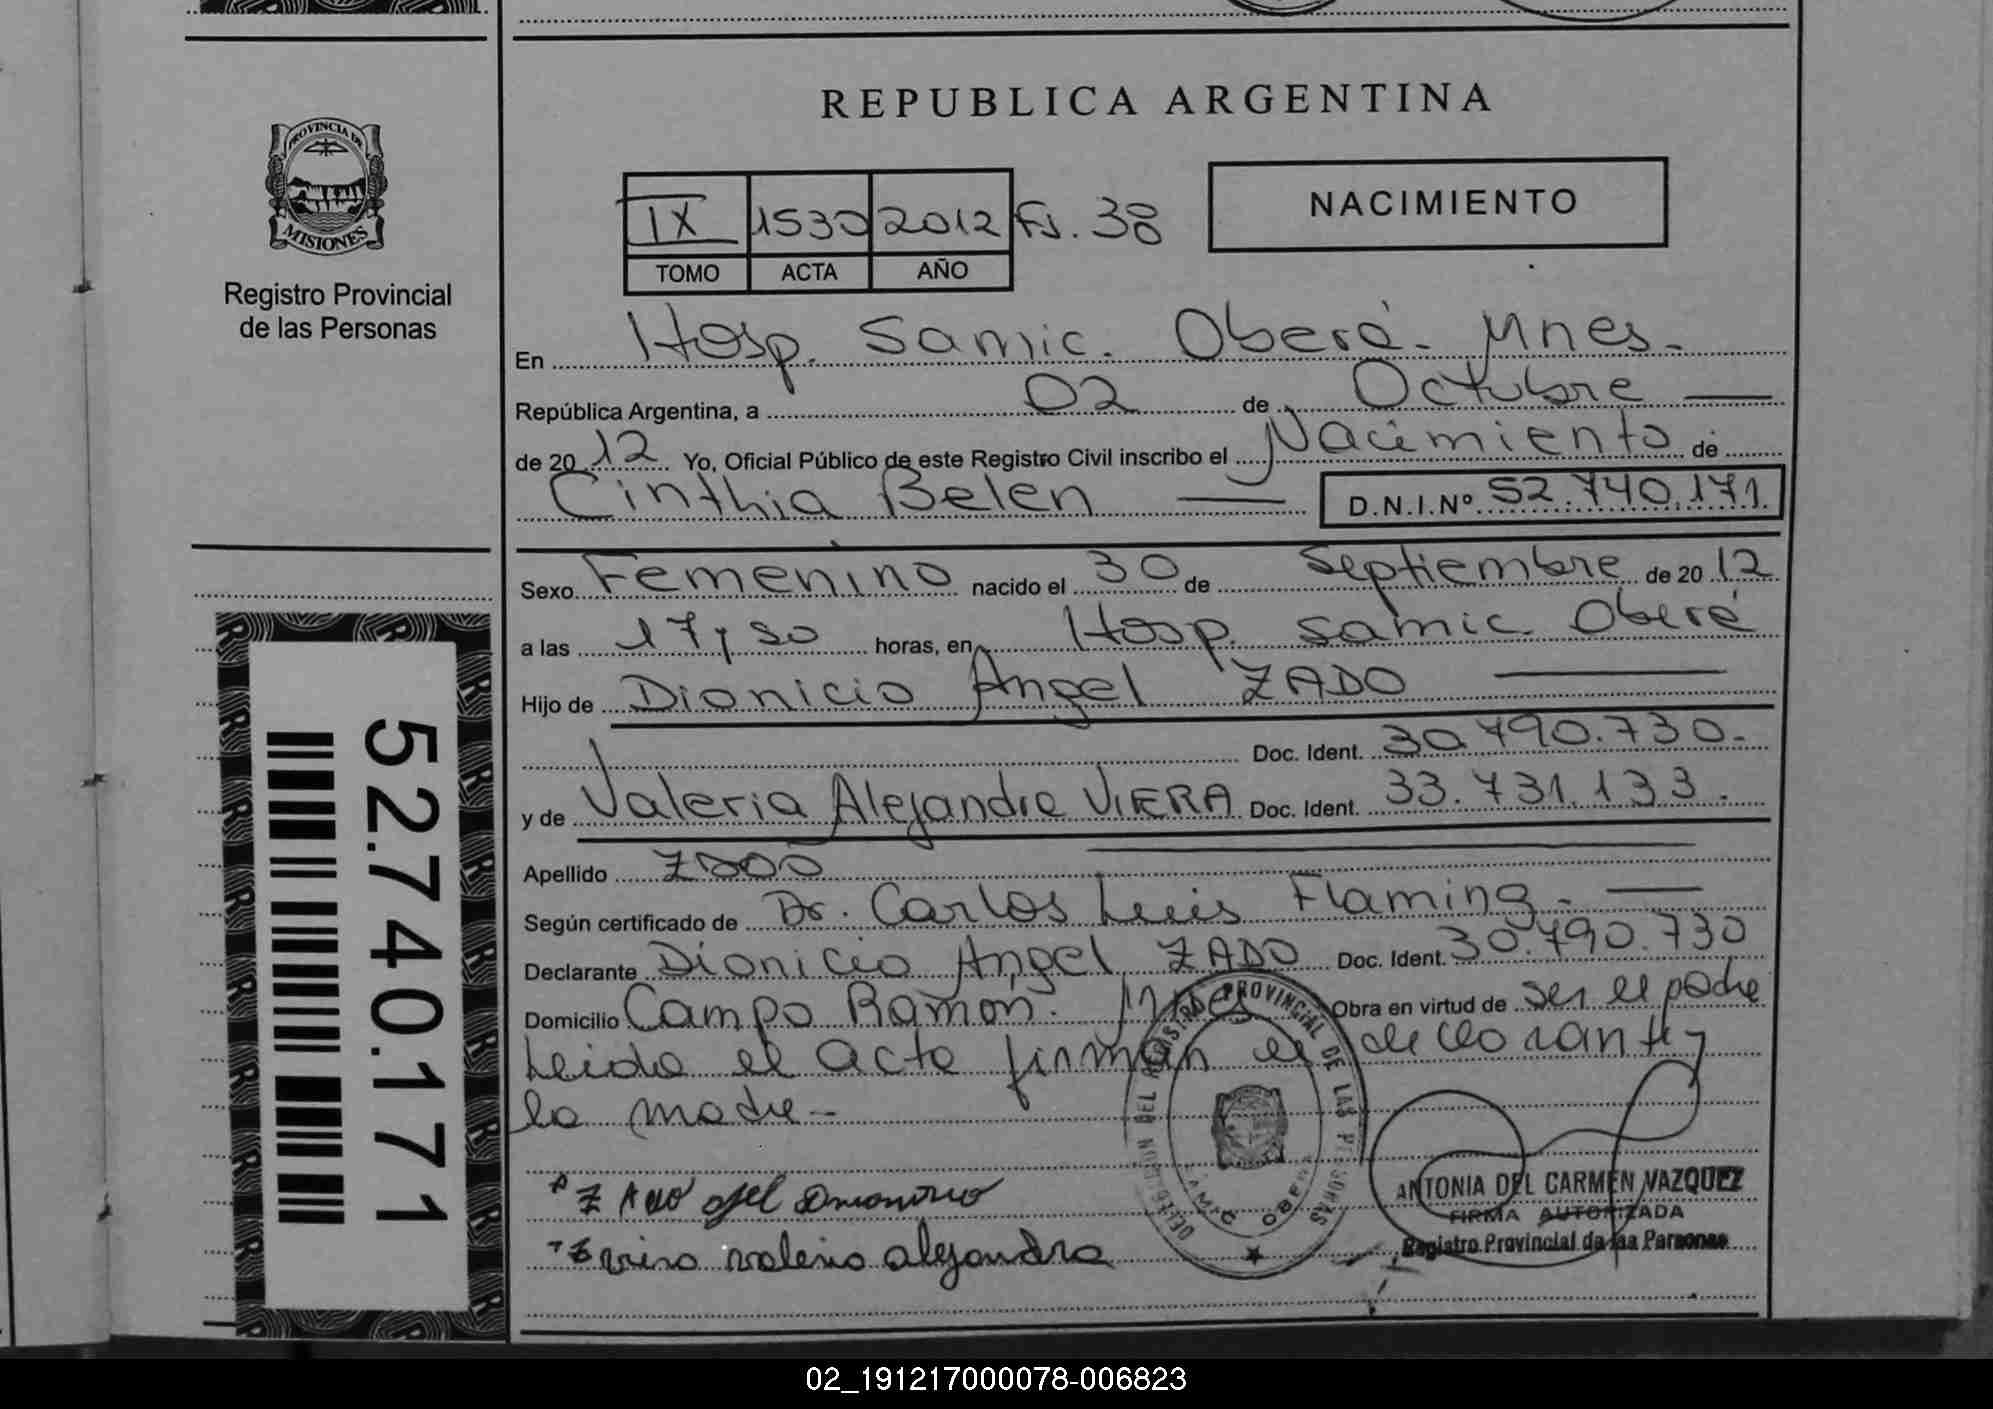 REPUBLICA ARGENTINA
PROVINCIA DE
MISIONES
Registro Provincial
de las Personas
IX 1530 2012 Fs. 38
TOMO ACTA AÑO
NACIMIENTO
En Hosp. Samic. Oberá. Mnes.
República Argentina, a 02 de Octubre
de 2012 Yo, Oficial Público de este Registro Civil inscribo el Nacimiento de
Cinthia Belen D.N.I.Nº 52.740.171.
Sexo Femenino nacido el 30 de Septiembre de 2012
a las 17 y horas, en Hosp. Samic Oberá
Hijo de Dionicio Angel ZADO
Doc. Ident. 30.790.730.
y de Valeria Alejandra VIERA Doc. Ident. 33.731.133.
Apellido ZADO
Según certificado de Dr. Carlos Luis Flaming.
Declarante Dionicio Angel ZADO Doc. Ident. 30.790.730
Domicilio Campo Ramon. Mnes Obra en virtud de ser el padre
Leida el acta firman el declarante y
la madre.
52.740.171
ZADO
valeria alejandra
PROVINCIAL DE LAS PERSONAS
ANTONIA DEL CARMEN VAZQUEZ
FIRMA AUTORIZADA
Registro Provincial de las Personas
02_191217000078-006823